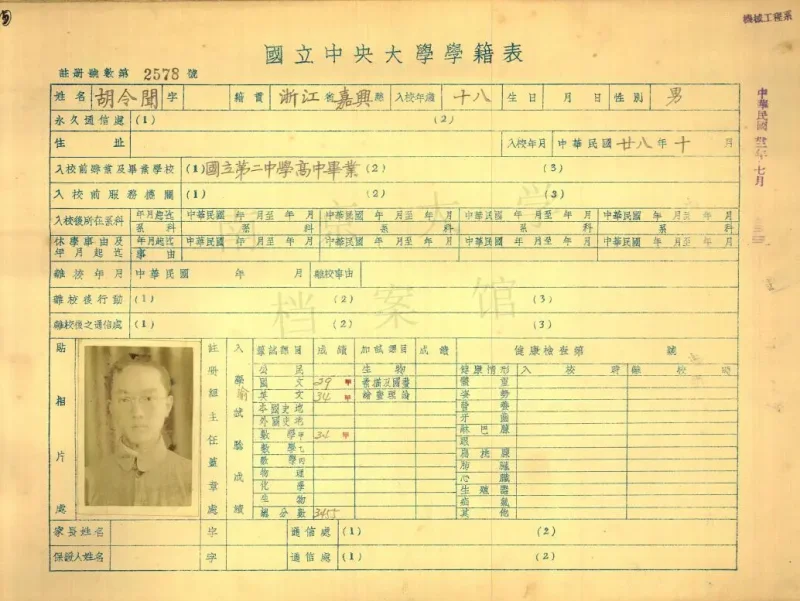 機械工程系
國立中央大學學籍表
註冊號數第 2578 號
姓名 胡令聞 字 籍貫 浙江省嘉興縣 入校年齡 十八 生日 月 日 性別 男
中華民國 年七月
永久通信處 (1) (2)
住址 入校年月 中華民國廿八年十月
入校前肄業及畢業學校 (1)國立第二中學高中畢業 (2) (3)
入校前服務機關 (1) (2) (3)
入校後所在系科 年月起迄 中華民國 年 月至 年 月 中華民國 年 月至 年 月 中華民國 年 月至 年 月 中華民國 年 月至 年 月
系科 系 科 系 科 系 科 系 科
休學事由及年月起迄 年月起迄 中華民國 年 月至 年 月 中華民國 年 月至 年 月 中華民國 年 月至 年 月 中華民國 年 月至 年 月
事由
南京大学
離校年月 中華民國 年 月 離校事由
離校後行動 (1) (2) (3)
档案馆
離校後之通信處 (1) (2) (3)
貼相片處
註冊組主任蓋章處
入學試驗成績
筆試課目 成績 加試課目 成績 健康檢查第 號
公民 生物 健康情形 入校時 離校時
國文 29 甲 素描及國畫 體重
英文 34 甲 繪畫理論 姿勢
本國史地 營養
外國史地 牙齒
數學甲 32 甲 淋巴腺
數學乙 眼
數學丙 扁桃腺
物理 肺臟
化學 心臟
生物 生殖器
總分數 3455 其他
家長姓名 字 通信處 (1) (2)
保證人姓名 字 通信處 (1) (2)